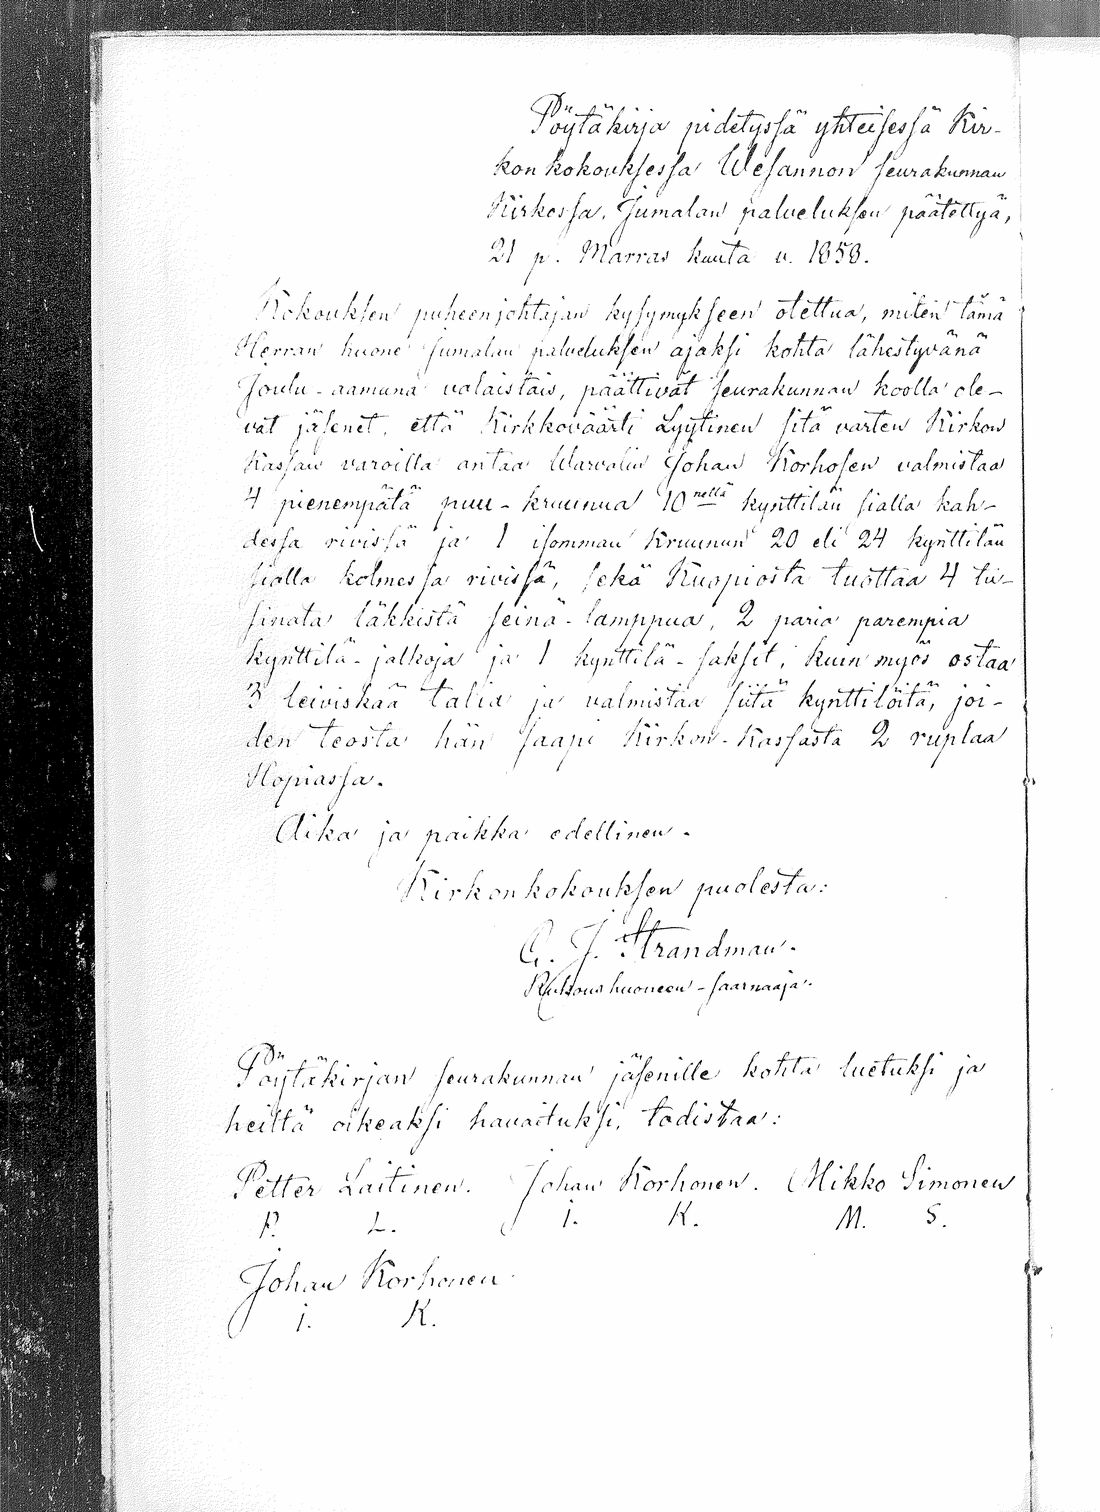 Pöytäkirja pidetyssä yhteisessä Kir-
kon kokouksessa Wesannon seurakunnan
Kirkossa, Jumalan palveluksen päätettyä,
21 p. Marras kuuta v. 1858.
Kokouksen puheenjohtajan kysymykseen otettua, miten tämä
Herran huone Jumalan palveluksen ajaksi kohta lähestyvänä
Joulu-aamuna valaistais, päättivät seurakunnan koolla ole-
vat jäsenet, että Kirkkoväärti Lyytinen sitä varten Kirkon
Kassan varoilla antaa Warvalin Johan Korhosen valmistaa
4 pienempätä puu-kruunua 10nellä kynttilän sialla kah-
dessa rivissä ja 1 isomman Kruunun 20 eli 24 kynttilän
sialla kolmessa rivissä, sekä Kuopiosta tuottaa 4 tu-
sinata läkkistä seinä-lamppua, 2 paria parempia
kynttilä-jalkoja ja 1 kynttilä-saksit; kuin myös ostaa
3 leiviskää talia ja valmistaa siitä kynttilöitä, joi-
den teosta hän saapi Kirkon-Kassasta 2 ruplaa
Hopiassa.
Aika ja paikka edellinen.
Kirkonkokouksen puolesta:
G. J. Strandman.
Rukoushuoneen-saarnaaja.
Pöytäkirjan seurakunnan jäsenille kohta luetuksi ja
heiltä oikeaksi havaituksi, todistaa:
Petter Laitinen. Johan Korhonen. Mikko Simonen
P. L. I. K. M. S.
Johan Korhonen
I. K.